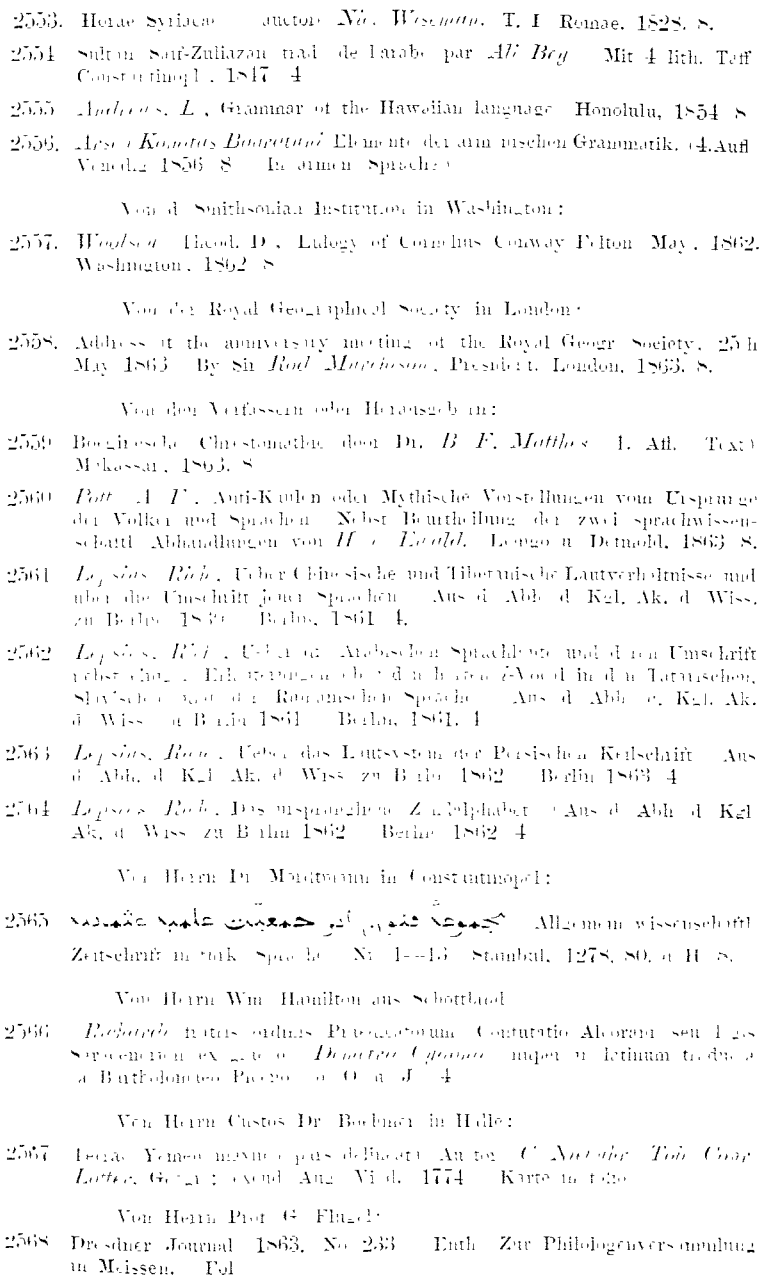 2553. Horae Syriacae auctore Nic. Wiseman. T. I Romae. 1828. 8.
2554 Sultan Saif-Zuliazan trad de larabe par Ali Bey Mit 4 lith. Taff
Constantinopl. 1847 4
2555 Andrews, L., Grammar of the Hawaiian language Honolulu, 1854 8
2556. Elemente der armenischen Grammatik. (4.Aufl
Venedig 1856 8 In armen Sprache)
Von d Smithsonian Institution in Washington:
2557. Woolsey Theod. D., Eulogy of Cornelius Conway Felton May, 1862.
Washington, 1862 8
Von der Royal Geographical Society in London:
2558. Address at the anniversary meeting of the Royal Geogr Society. 25th
May 1863 By Sir Rod Murchison, President. London, 1863. 8.
Von den Verfassern oder Herausgebern:
2559 Boegineesche Chrestomathie door Dr. B F. Matthes 1. Afl. Text)
Makassar, 1863. 8
2560 Pott A F, Anti-Kaulen oder Mythische Vorstellungen vom Ursprunge
der Völker und Sprachen Nebst Beurtheilung der zwei sprachwissen-
schaftl Abhandlungen von H v Ewald. Lemgo u Detmold, 1863 8.
2561 Lepsius Rich, Ueber Chinesische und Tibetanische Lautverhältnisse und
über die Umschrift jener Sprachen Aus d Abh d Kgl. Ak. d Wiss.
zu Berlin Berlin, 1861 4.
2562 Lepsius, Rich, Ueber die Arabischen Sprachlaute und deren Umschrift
nebst einigen Erläuterungen über den harten i-Vocal in den Tatarischen,
Slavischen und der Rumänischen Sprache Aus d Abh d. Kgl. Ak.
d Wiss zu Berlin 1861 Berlin, 1861. 4
2563 Lepsius, Rich, Ueber das Lautsystem der Persischen Keilschrift Aus
d Abh. d Kgl Ak. d Wiss zu Berlin 1862 Berlin 1863 4
2564 Lepsius Rich, Das ursprüngliche Zendalphabet (Aus d Abh d Kgl
Ak. d Wiss zu Berlin 1862 Berlin 1862 4
Von Herrn Dr Mordtmann in Constantinopel:
2565 مجموعة فنون Allgemein wissenschaftl
Zeitschrift in türk Sprache Nr 1--13 Stambul, 1278, 80. d H 8.
Von Herrn Wm Hamilton aus Schottland
2566 Richardi fratris ordinis Praedicatorum Confutatio Alcorani seu legis
Saracenorum ex graeco nuper in latinum traducta
a Bartholomaeo Piceno O u J 4
Von Herrn Custos Dr Boehmer in Halle:
2567 Terrae Yemen maxima pars delineata Auctor C Niebuhr Tob Conr
Lotter, Geogr: excud Aug Vind. 1774 Karte in folio
Von Herrn Prof G Flügel:
2568 Dresdner Journal 1863. No 233 Enth Zur Philologenversammlung
in Meissen. Fol